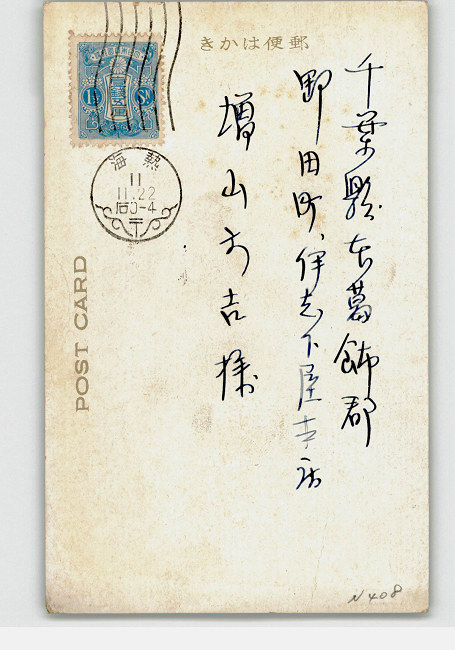 郵便はかき
千葉縣東葛飾郡
野田町、伊志下屋書店
増山方吉様
熱海
11
11.22
后0-4
POST CARD
N408